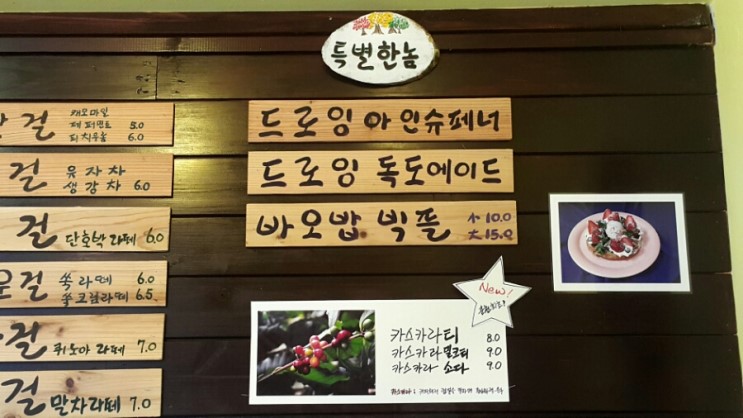 특별한놈
걸 캐모마일
페퍼민트 5.0
피치우롱 6.0
걸 유자차
생강차 6.0
걸 단호박 라떼 6.0
운걸 쑥라떼 6.0
쑥크림라떼 6.5
걸 퀴노아 라떼 7.0
걸 말차라떼 7.0
드로잉 아인슈페너
드로잉 독도에이드
바오밥 빅플 小 10.0
大 15.0
New!
카스카라티 8.0
카스카라밀크티 9.0
카스카라 소다 9.0